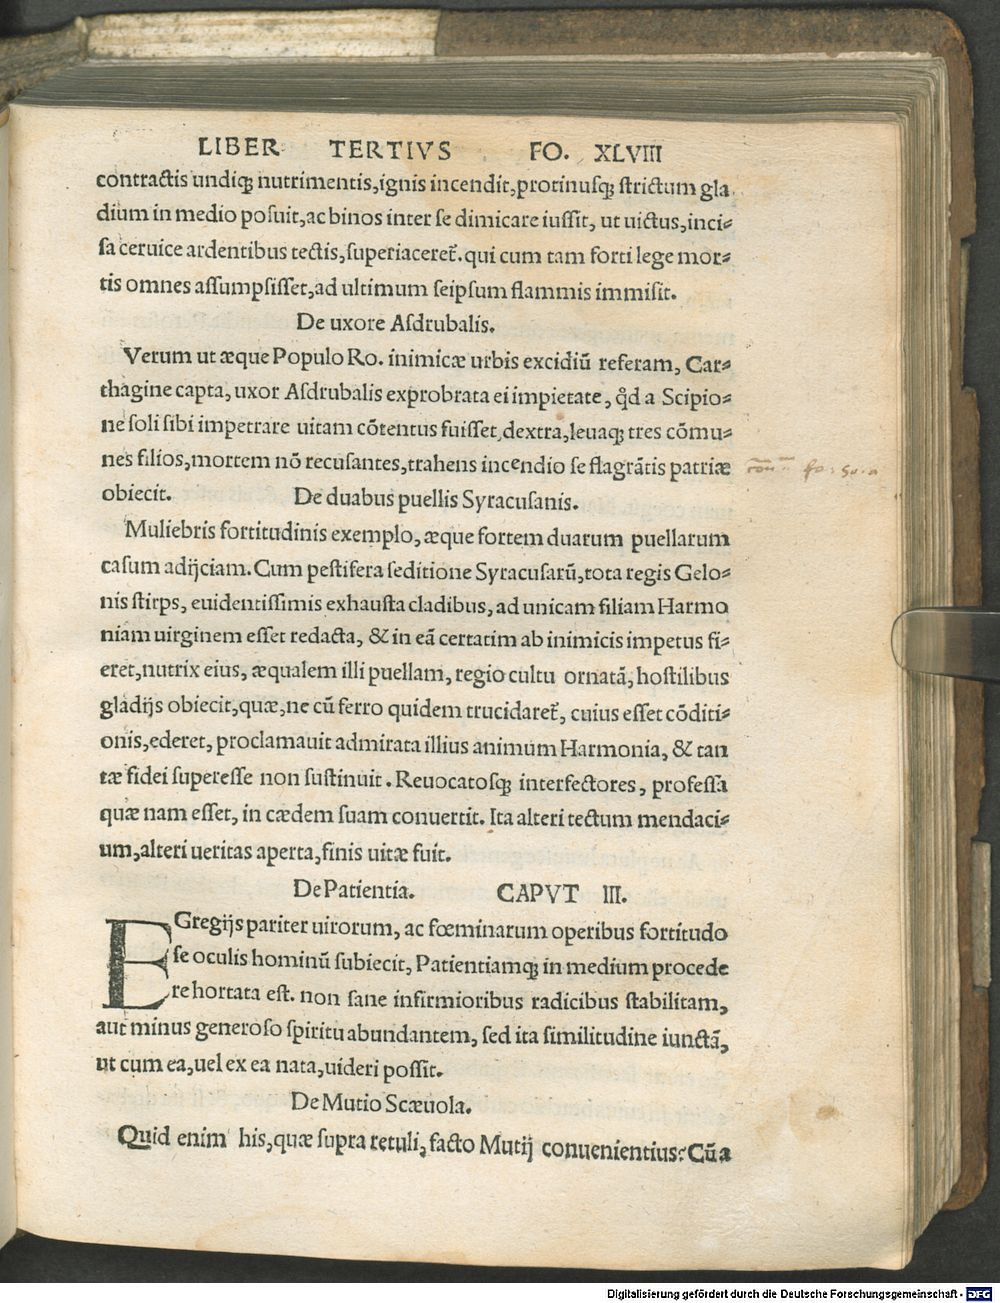 LIBER TERTIVS FO. XLVIII
contractis undiq; nutrimentis,ignis incendit,protinusq; strictum gla
dium in medio posuit,ac binos inter se dimicare iussit, ut uictus,inci⸗
sa ceruice ardentibus tectis,superiaceret᷑. qui cum tam forti lege mor⸗
tis omnes assumpsisset,ad ultimum seipsum flammis immisit.
De uxore Asdrubalis.
Verum ut æque Populo Ro. inimicæ urbis excidiũ referam, Car⸗
thagine capta, uxor Asdrubalis exprobrata ei impietate, ꝙd a Scipio⸗
ne soli sibi impetrare uitam cõtentus fuisset,dextra,leuaq; tres cõmu⸗
nes filios,mortem nõ recusantes,trahens incendio se flagrãtis patriæ
obiecit. De duabus puellis Syracusanis.
Muliebris fortitudinis exemplo, æque fortem duarum puellarum
casum adijciam. Cum pestifera seditione Syracusarũ,tota regis Gelo⸗
nis stirps, euidentissimis exhausta cladibus, ad unicam filiam Harmo
niam uirginem esset redacta, & in eã certatim ab inimicis impetus fi⸗
eret,nutrix eius, æqualem illi puellam, regio cultu ornatã, hostilibus
gladijs obiecit,quæ,ne cũ ferro quidem trucidaret᷑, cuius esset cõditi⸗
onis,ederet, proclamauit admirata illius animum Harmonia, & tan
tæ fidei superesse non sustinuit. Reuocatosq; interfectores, professa
quæ nam esset, in cædem suam conuertit. Ita alteri tectum mendaci⸗
um,alteri ueritas aperta,finis uitæ fuit.
De Patientia. CAPVT III.
EGregijs pariter uirorum, ac fœminarum operibus fortitudo
se oculis hominũ subiecit, Patientiamq; in medium procede
re hortata est. non sane infirmioribus radicibus stabilitam,
aut minus generoso spiritu abundantem, sed ita similitudine iunctã,
ut cum ea,uel ex ea nata,uideri possit.
De Mutio Scæuola.
Quid enim his,quæ supra retuli, facto Mutij conuenientius? Cũ a
Digitalisierung gefördert durch die Deutsche Forschungsgemeinschaft - DFG